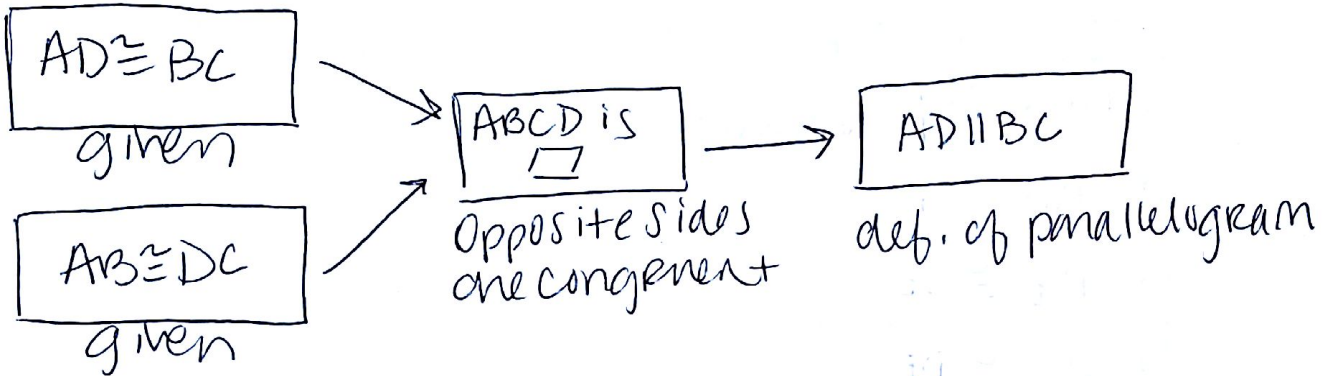 AD≅BC
given
AB≅DC
given
ABCD is
▱
Opposite sides
are congruent
AD||BC
def. of parallelogram